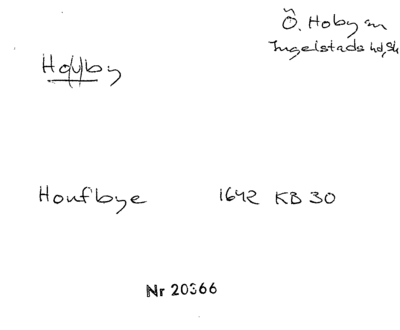 Ö. Hoby sn
Ingelstads hd, Sk
Ho(u)by
Houfbye 1642 KB 30
Nr 20366